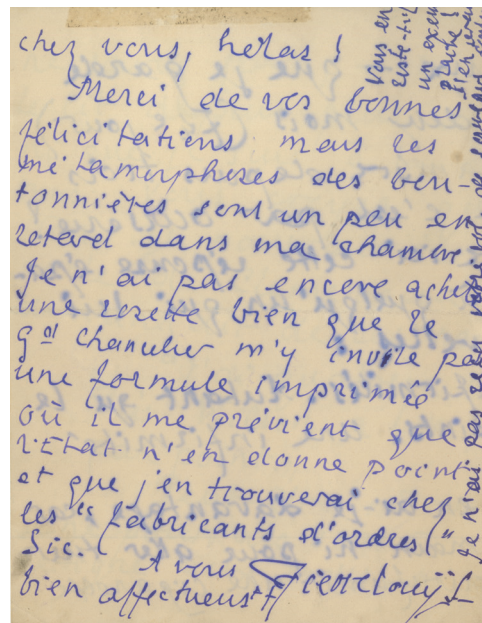 chez vous, hélas !
Merci de vos bonnes
félicitations mais les
métamorphoses des bou-
tonnières sont un peu en
retard dans ma chambre.
Je n'ai pas encore acheté
une rosette bien que le
Gal Chancelier m'y invite par
une formule imprimée
où il me prévient que
l'Etat n'en donne point
et que j'en trouverai chez
les "fabricants d'ordres"
Sic.
A vous
bien affectueust
Pierre Louÿs
Vous en
reste-t-il
un exem
plaire ?
Bien
je n'ai pas reçu votre